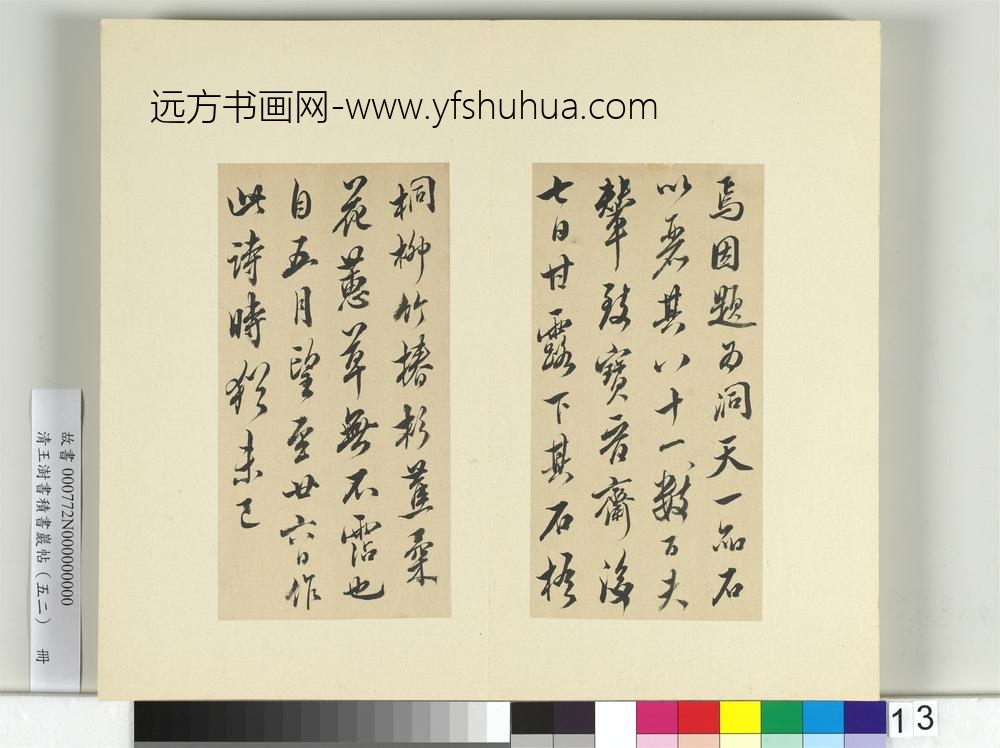 远方书画网-www.yfshuhua.com
焉因题为洞天一品石
以丽其八十一数百夫
辇致寶晋齋後
七日甘露下其石梧
桐柳竹椿杉蕉桑
花蕙草無不霑也
自五月望至廿六日作
此诗時猶未已
故書 000772N000000000
清王澍書積書巖帖（五二） 冊
13